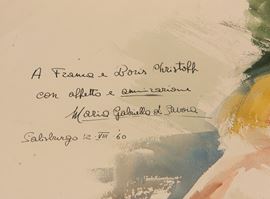 A Franca e Boris Christoff
con affetto e ammirazione
Maria Gabriella di Savoia
Salisburgo 12 VIII 60